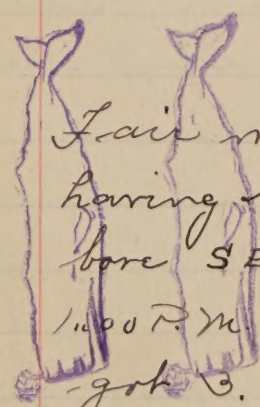 Fair
having
bore SE
1.00 P.M.
got 3.